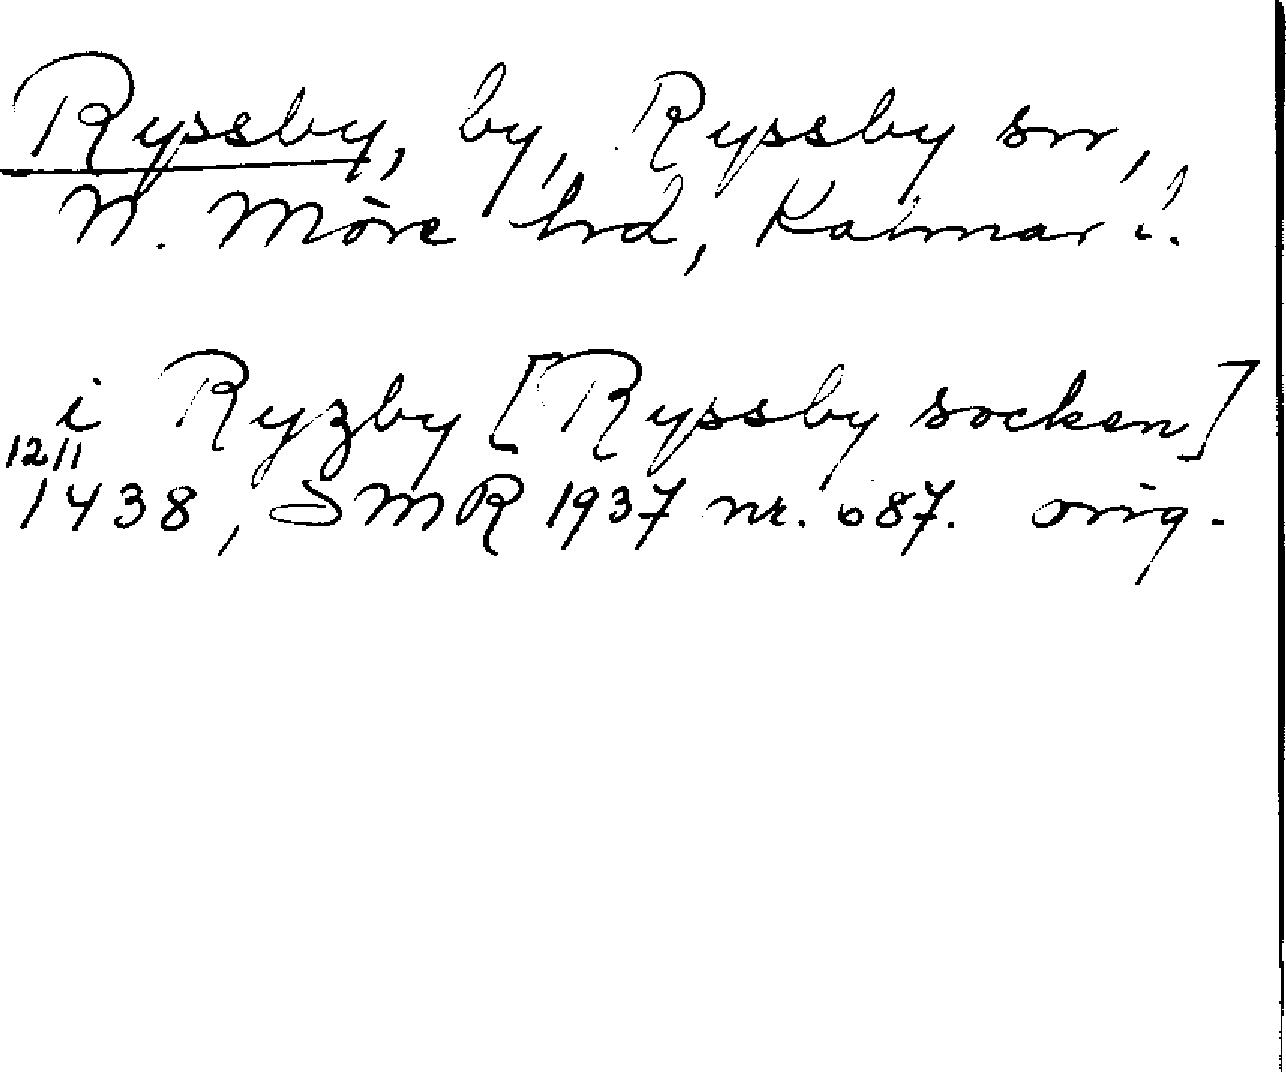 Ryssby, by, Ryssby sn,
N. Möre hd, Kalmar l.
i Ryzby [Ryssby socken]
12/11
1438, SMR 1937 nr. 687. orig.